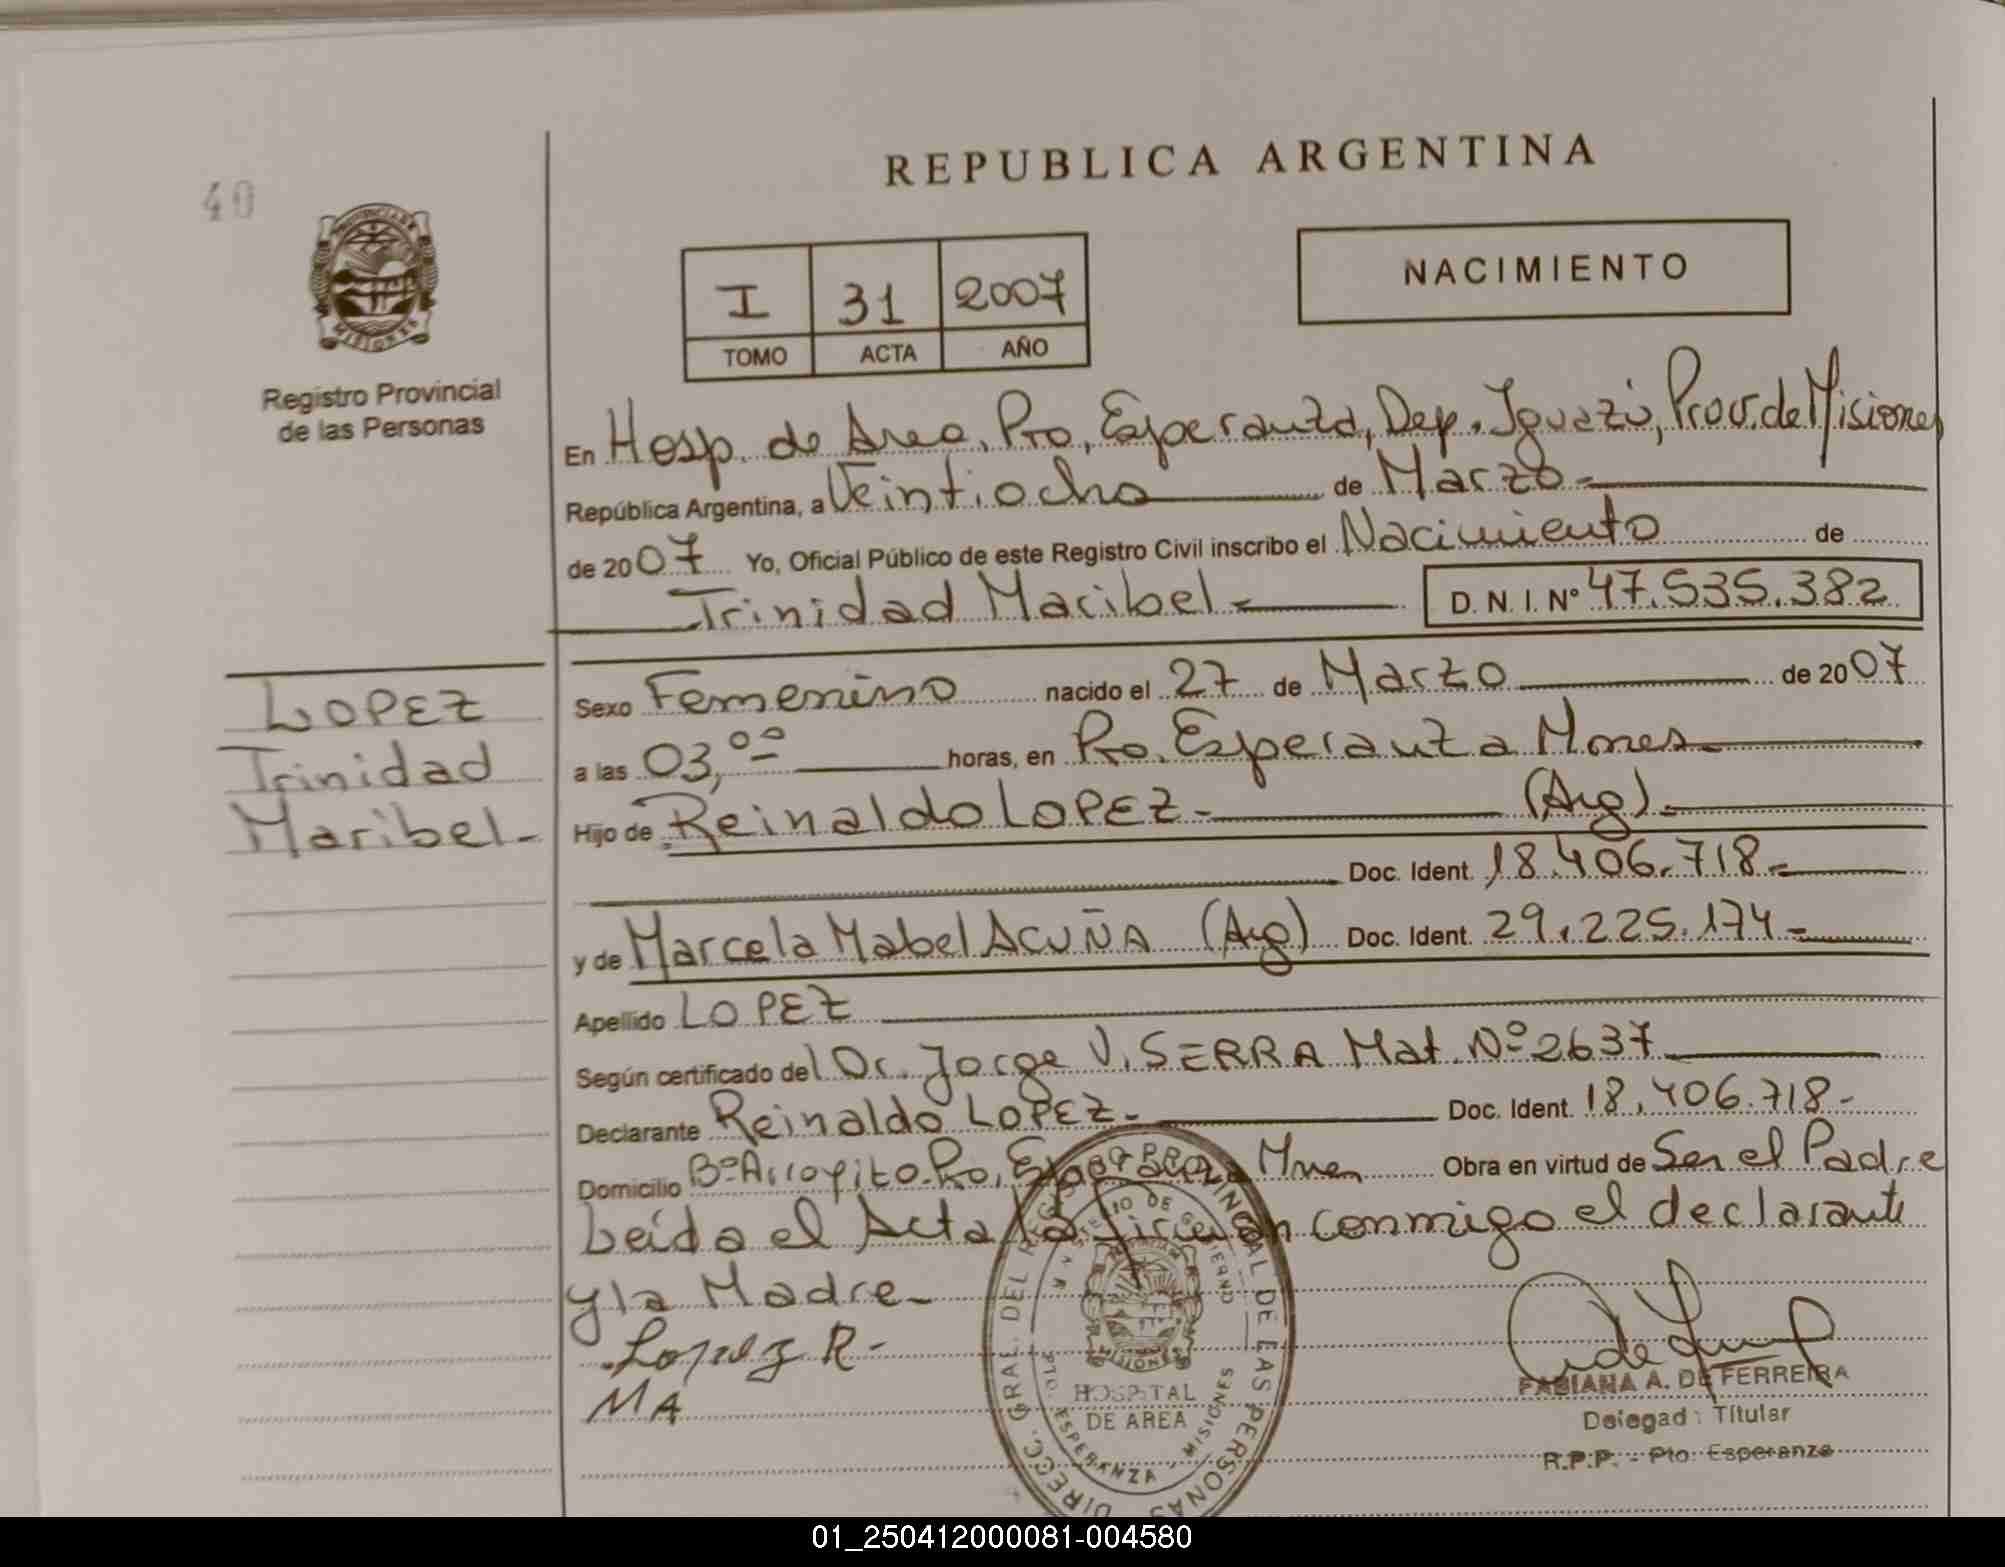 40
REPUBLICA ARGENTINA
NACIMIENTO
I 31 2007
TOMO ACTA AÑO
PROVINCIA DE
MISIONES
Registro Provincial
de las Personas
En Hosp. de Area, Pto, Esperanza, Dep. Iguazú, Prov. de Misiones
República Argentina, a Veintiocho de Marzo.-
de 2007 Yo, Oficial Público de este Registro Civil inscribo el Nacimiento de
Trinidad Maribel.- D. N. I. Nº 47.535.382
LOPEZ
Trinidad
Maribel-
Sexo Femenino nacido el 27 de Marzo de 2007
a las 03,ºº horas, en Pto. Esperanza Mnes.-
Hijo de Reinaldo LOPEZ.- (Arg).-
Doc. Ident. 18.406.718.-
y de Marcela Mabel ACUÑA (Arg) Doc. Ident. 29.225.174.-
Apellido LOPEZ
Según certificado del Dr. Jorge V. SERRA Mat. Nº 2637
Declarante Reinaldo LOPEZ.- Doc. Ident. 18.406.718-
Domicilio Bº Arroyito Pto, Esperanza Mnes Obra en virtud de Ser el Padre
Leída el Acta la firman conmigo el declarante
y la Madre-
Lopez R-
MA
DIRECC. GRAL. DEL REG. PROVINCIAL DE LAS PERSONAS
MINISTERIO DE GOBIERNO
MISIONES
HOSPITAL
DE AREA
PTO. ESPERANZA, MISIONES
FABIANA A. DE FERREIRA
Delegad: Titular
R.P.P. - Pto. Esperanza
01_250412000081-004580